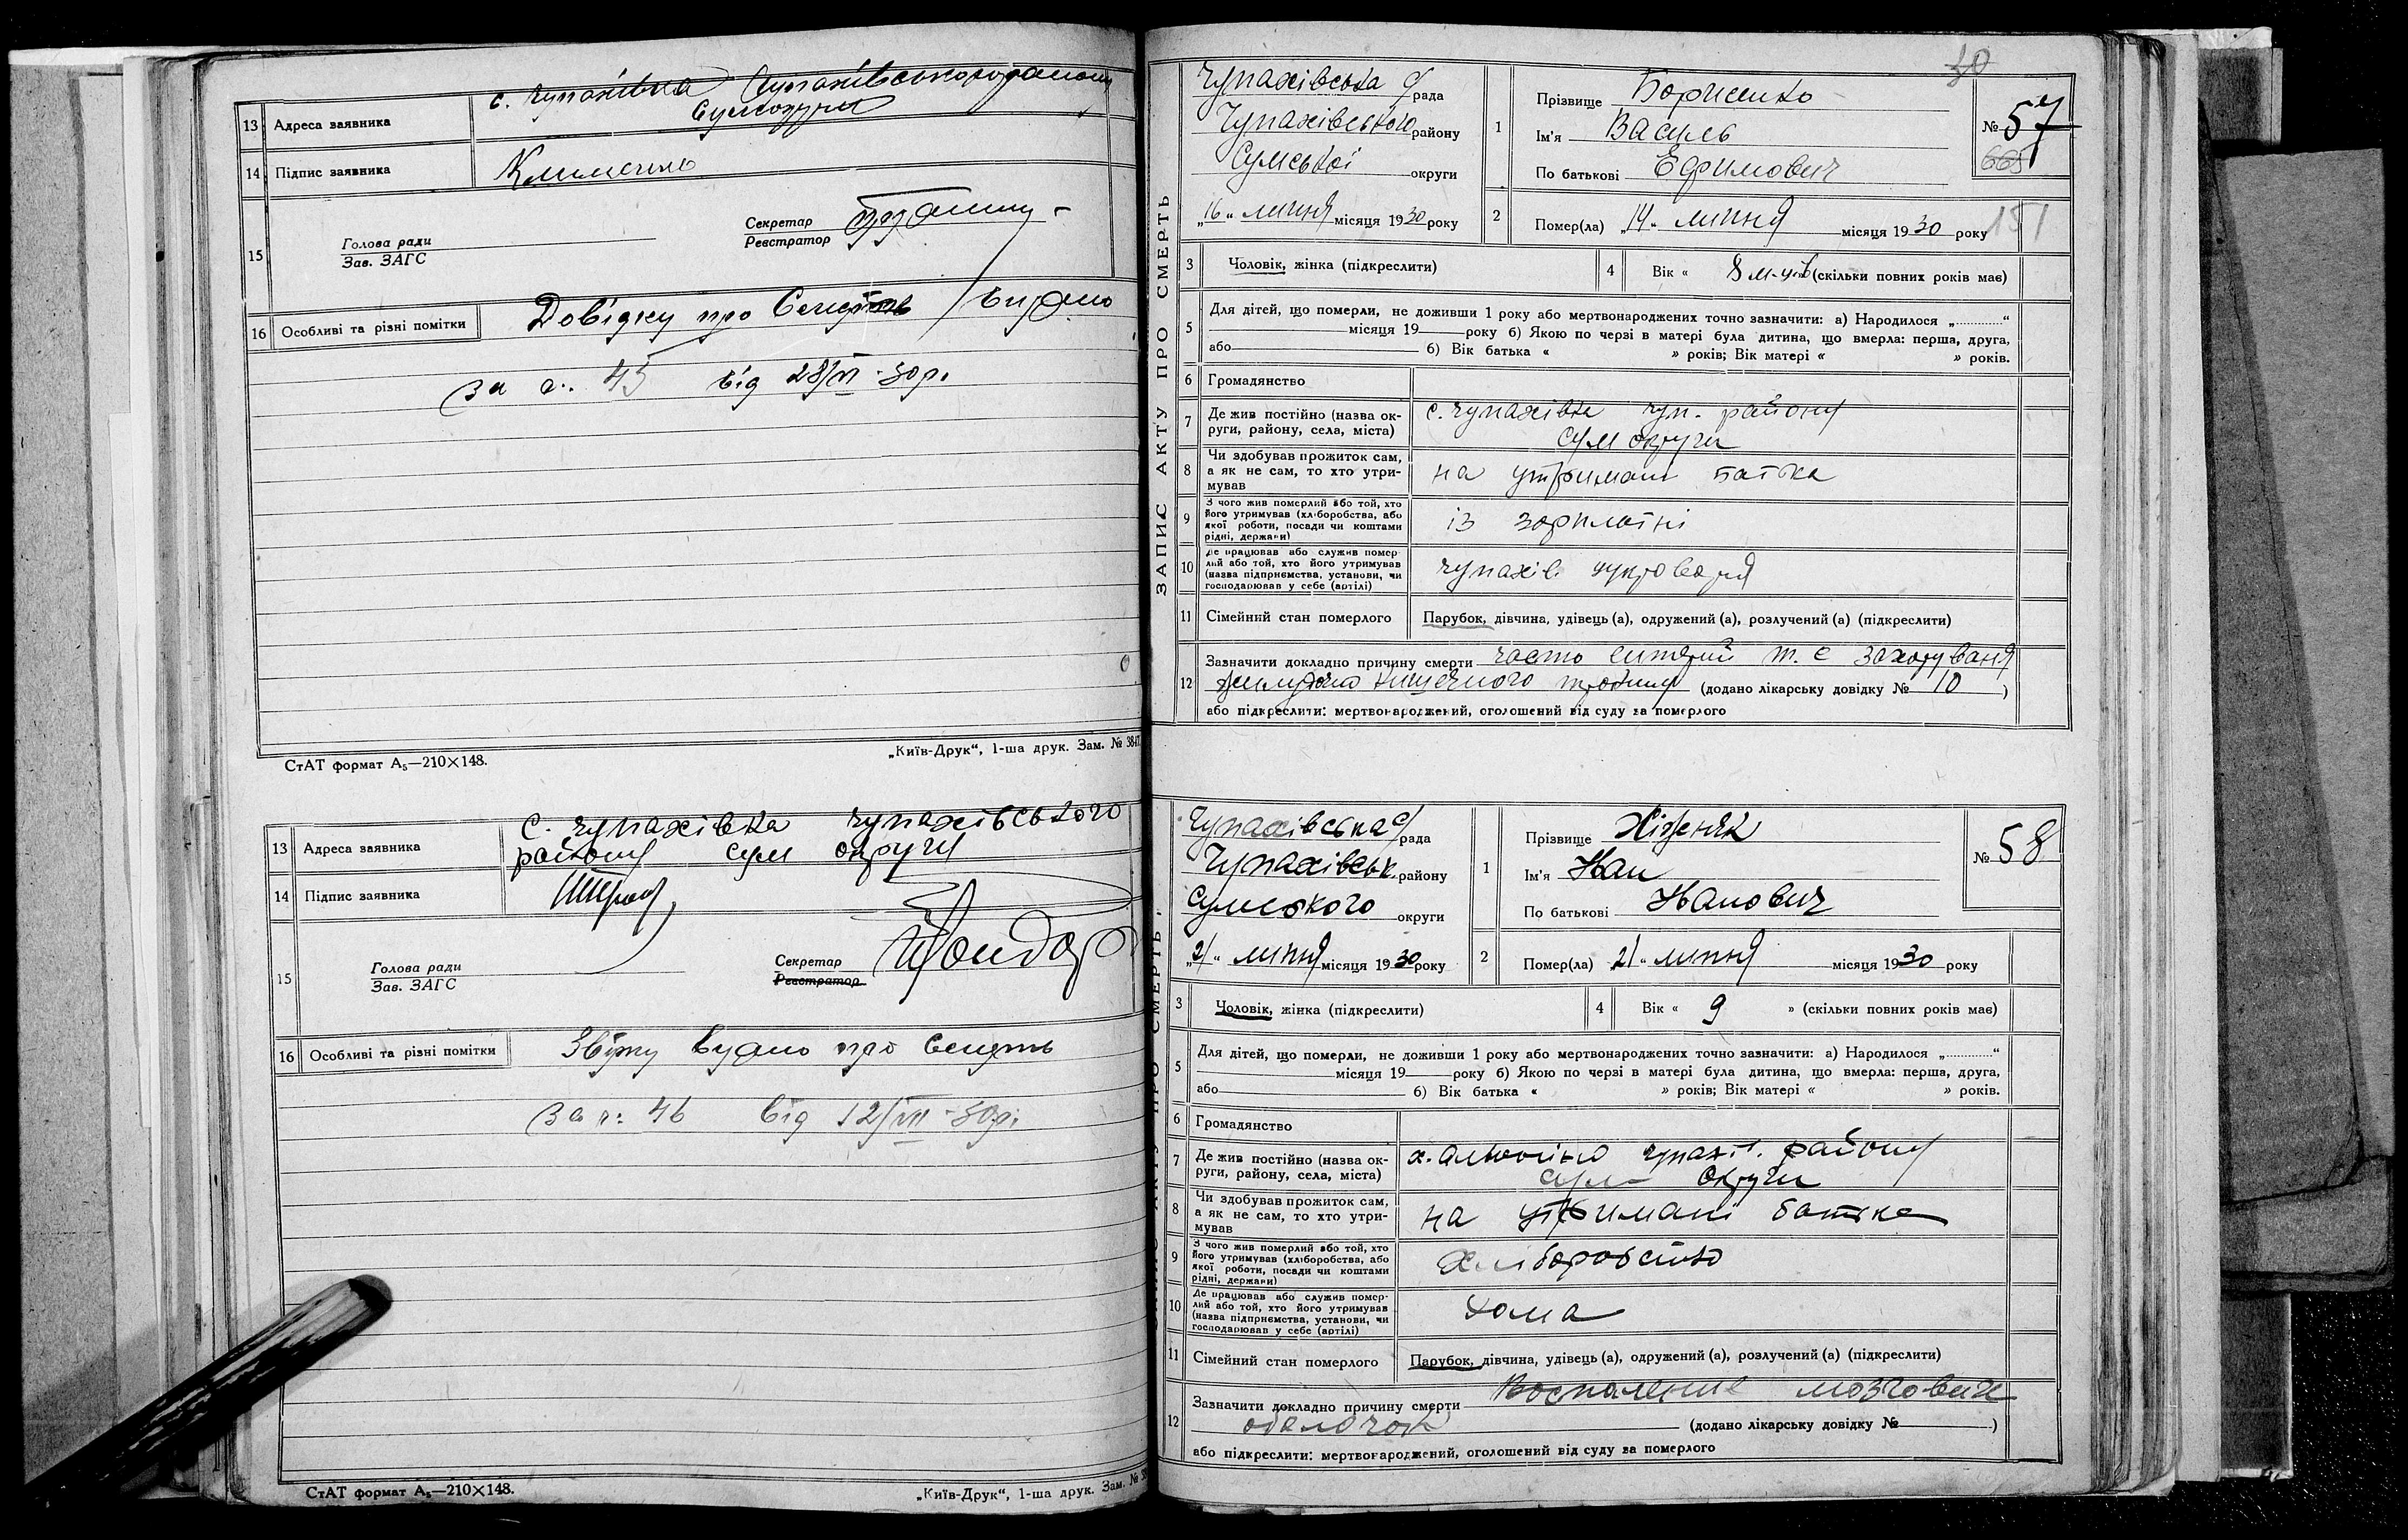 13 Адреса заявника с. Чупахівка Чупахівського району
Сумокруги
14 Підпис заявника Клименко
15 Голова ради
Зав. ЗАГС
Секретар
Реєстратор
16 Особливі та різні помітки Довідку про Смерть видано
за № 45 від 28/VII-30р.
СтАТ формат А5—210×148.
„Київ-Друк“, 1-ша друк. Зам. № 3847
13 Адреса заявника с. Чупахівка Чупахівського
району Сум округи
14 Підпис заявника
15 Голова ради
Зав. ЗАГС
Секретар
Реєстратор
16 Особливі та різні помітки видано про Смерть
за №: 46 від 12/VII-30р.
СтАТ формат А5—210×148.
„Київ-Друк“, 1-ша друк. Зам. №
30
ЗАПИС АКТУ ПРО СМЕРТЬ
Чупахівська с/рада
Чупахівського району
Сумської округи
„16“ липня місяця 1930 року
1 Прізвище Борисенко
Ім'я Василь
По батькові Ефимович
№ 57
665
2 Помер(ла) „14“ липня місяця 1930 року
151
3 Чоловік, жінка (підкреслити)
4 Вік « 8 м-ців (скільки повних років має)
5 Для дітей, що померли, не доживши 1 року або мертвонароджених точно зазначити: а) Народилося „............“
місяця 19 року б) Якою по черзі в матері була дитина, що вмерла: перша, друга,
або б) Вік батька « » років; Вік матері « » років.
6 Громадянство
7 Де жив постійно (назва округи, району, села, міста) с. Чупахівка Чуп. району
Сум округи
8 Чи здобував прожиток сам,
а як не сам, то хто утри-
мував на утримані батька
9 З чого жив померлий або той, хто
його утримував (хліборобства, або
якої роботи, посади чи коштами
рідні, держави) із зарплатні
10 Де працював або служив помер-
лий або той, хто його утримував
(назва підприємства, установи, чи
господарював у себе (артілі) Чупахів цукроварня
11 Сімейний стан померлого Парубок, дівчина, удівець (а), одружений (а), розлучений (а) (підкреслити)
12 Зазначити докладно причину смерти т. є
(додано лікарську довідку № 10)
або підкреслити: мертвонароджений, оголошений від суду за померлого
ЗАПИС АКТУ ПРО СМЕРТЬ
Чупахівська с/рада
Чупахівськ. району
Сумського округи
„21“ липня місяця 1930 року
1 Прізвище
Ім'я Іван
По батькові Іванович
№ 58
2 Помер(ла) 21“ липня місяця 1930 року
3 Чоловік, жінка (підкреслити)
4 Вік « 9 » (скільки повних років має)
5 Для дітей, що померли, не доживши 1 року або мертвонароджених точно зазначити: а) Народилося „............“
місяця 19 року б) Якою по черзі в матері була дитина, що вмерла: перша, друга,
або б) Вік батька « » років; Вік матері « » років.
6 Громадянство
7 Де жив постійно (назва ок-
руги, району, села, міста) х. Чупах. району
Сум округи
8 Чи здобував прожиток сам,
а як не сам, то хто утри-
мував на утримані батька
9 З чого жив померлий або той, хто
його утримував (хліборобства, або
якої роботи, посади чи коштами
рідні, держави) Хліборобство
10 Де працював або служив помер-
лий або той, хто його утримував
(назва підприємства, установи, чи
господарював у себе (артілі) дома
11 Сімейний стан померлого Парубок, дівчина, удівець (а), одружений (а), розлучений (а) (підкреслити)
12 Зазначити докладно причину смерти Воспаление мозгових
оболочок (додано лікарську довідку № )
або підкреслити: мертвонароджений, оголошений від суду за померлого